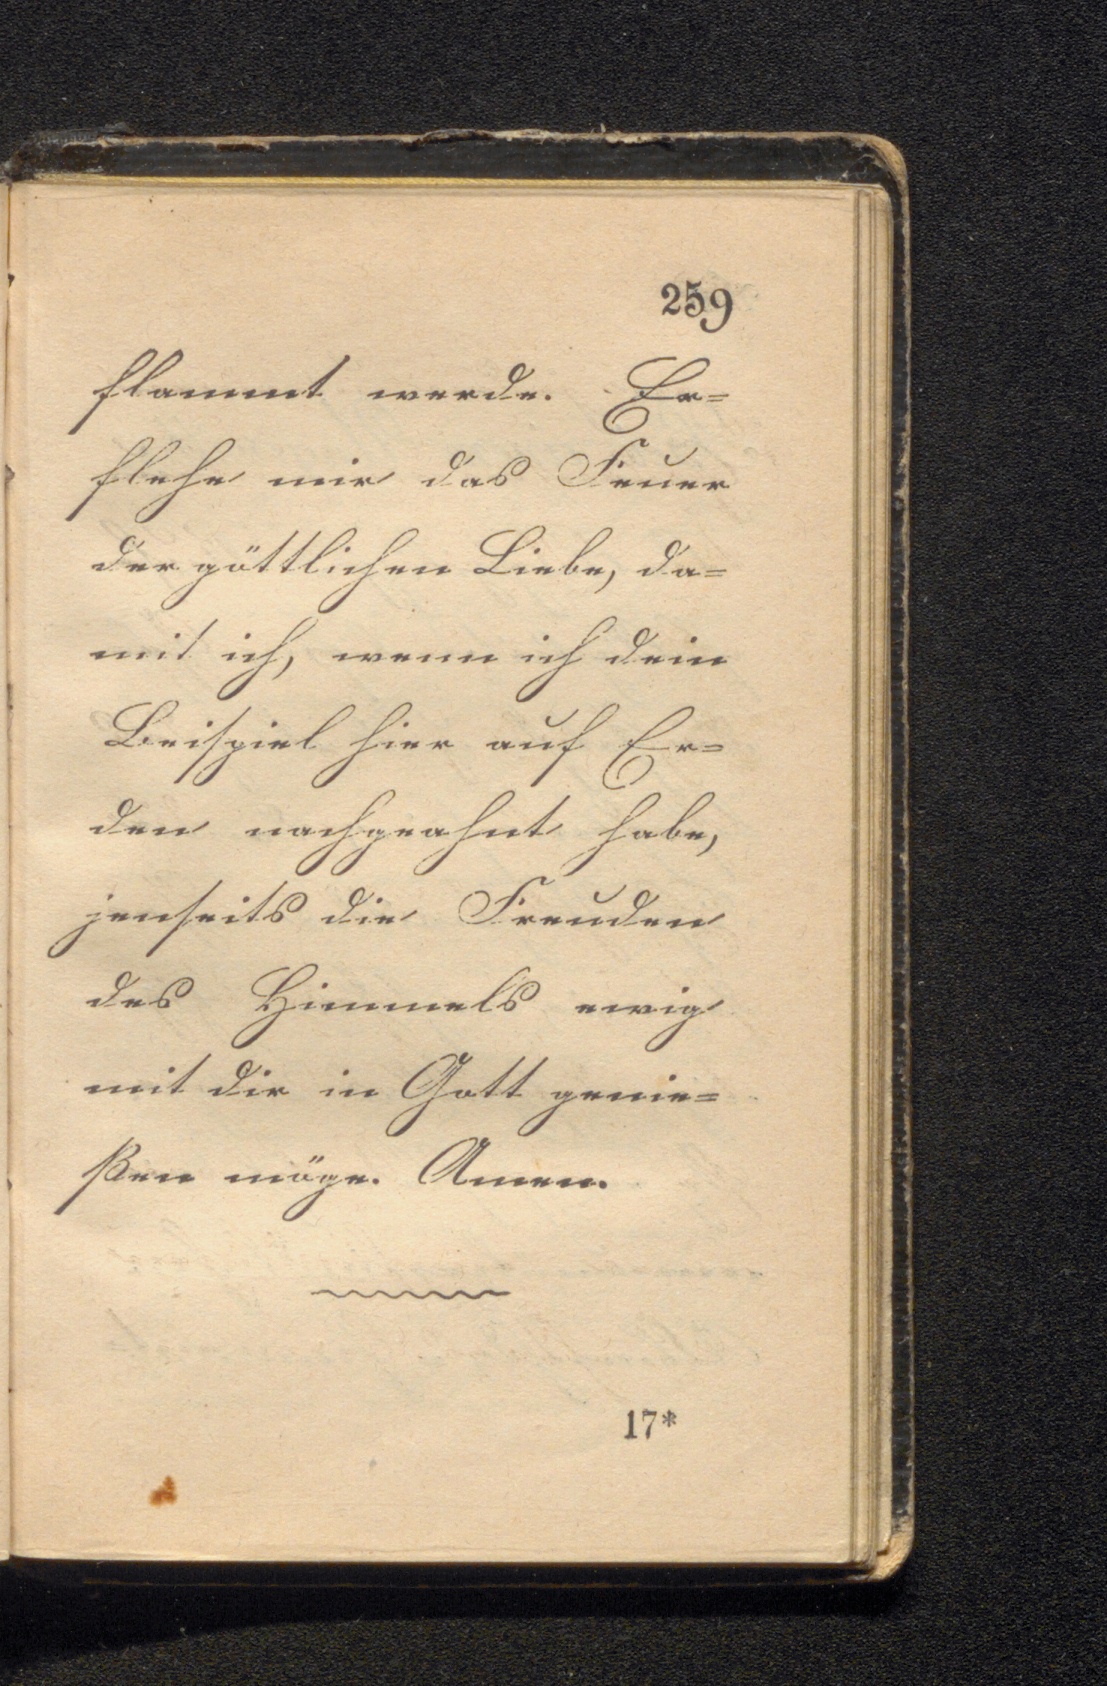 259
flammt werde. Er=
flehe mir das Feuer
der göttlichen Liebe, da=
mit ich, wenn ich dein
Beispiel hier auf Er=
den nachgeahnt habe,
jenseits die Freuden
des Himmels ewig
mit dir in Gott genie=
ßen möge. Amen.
17*